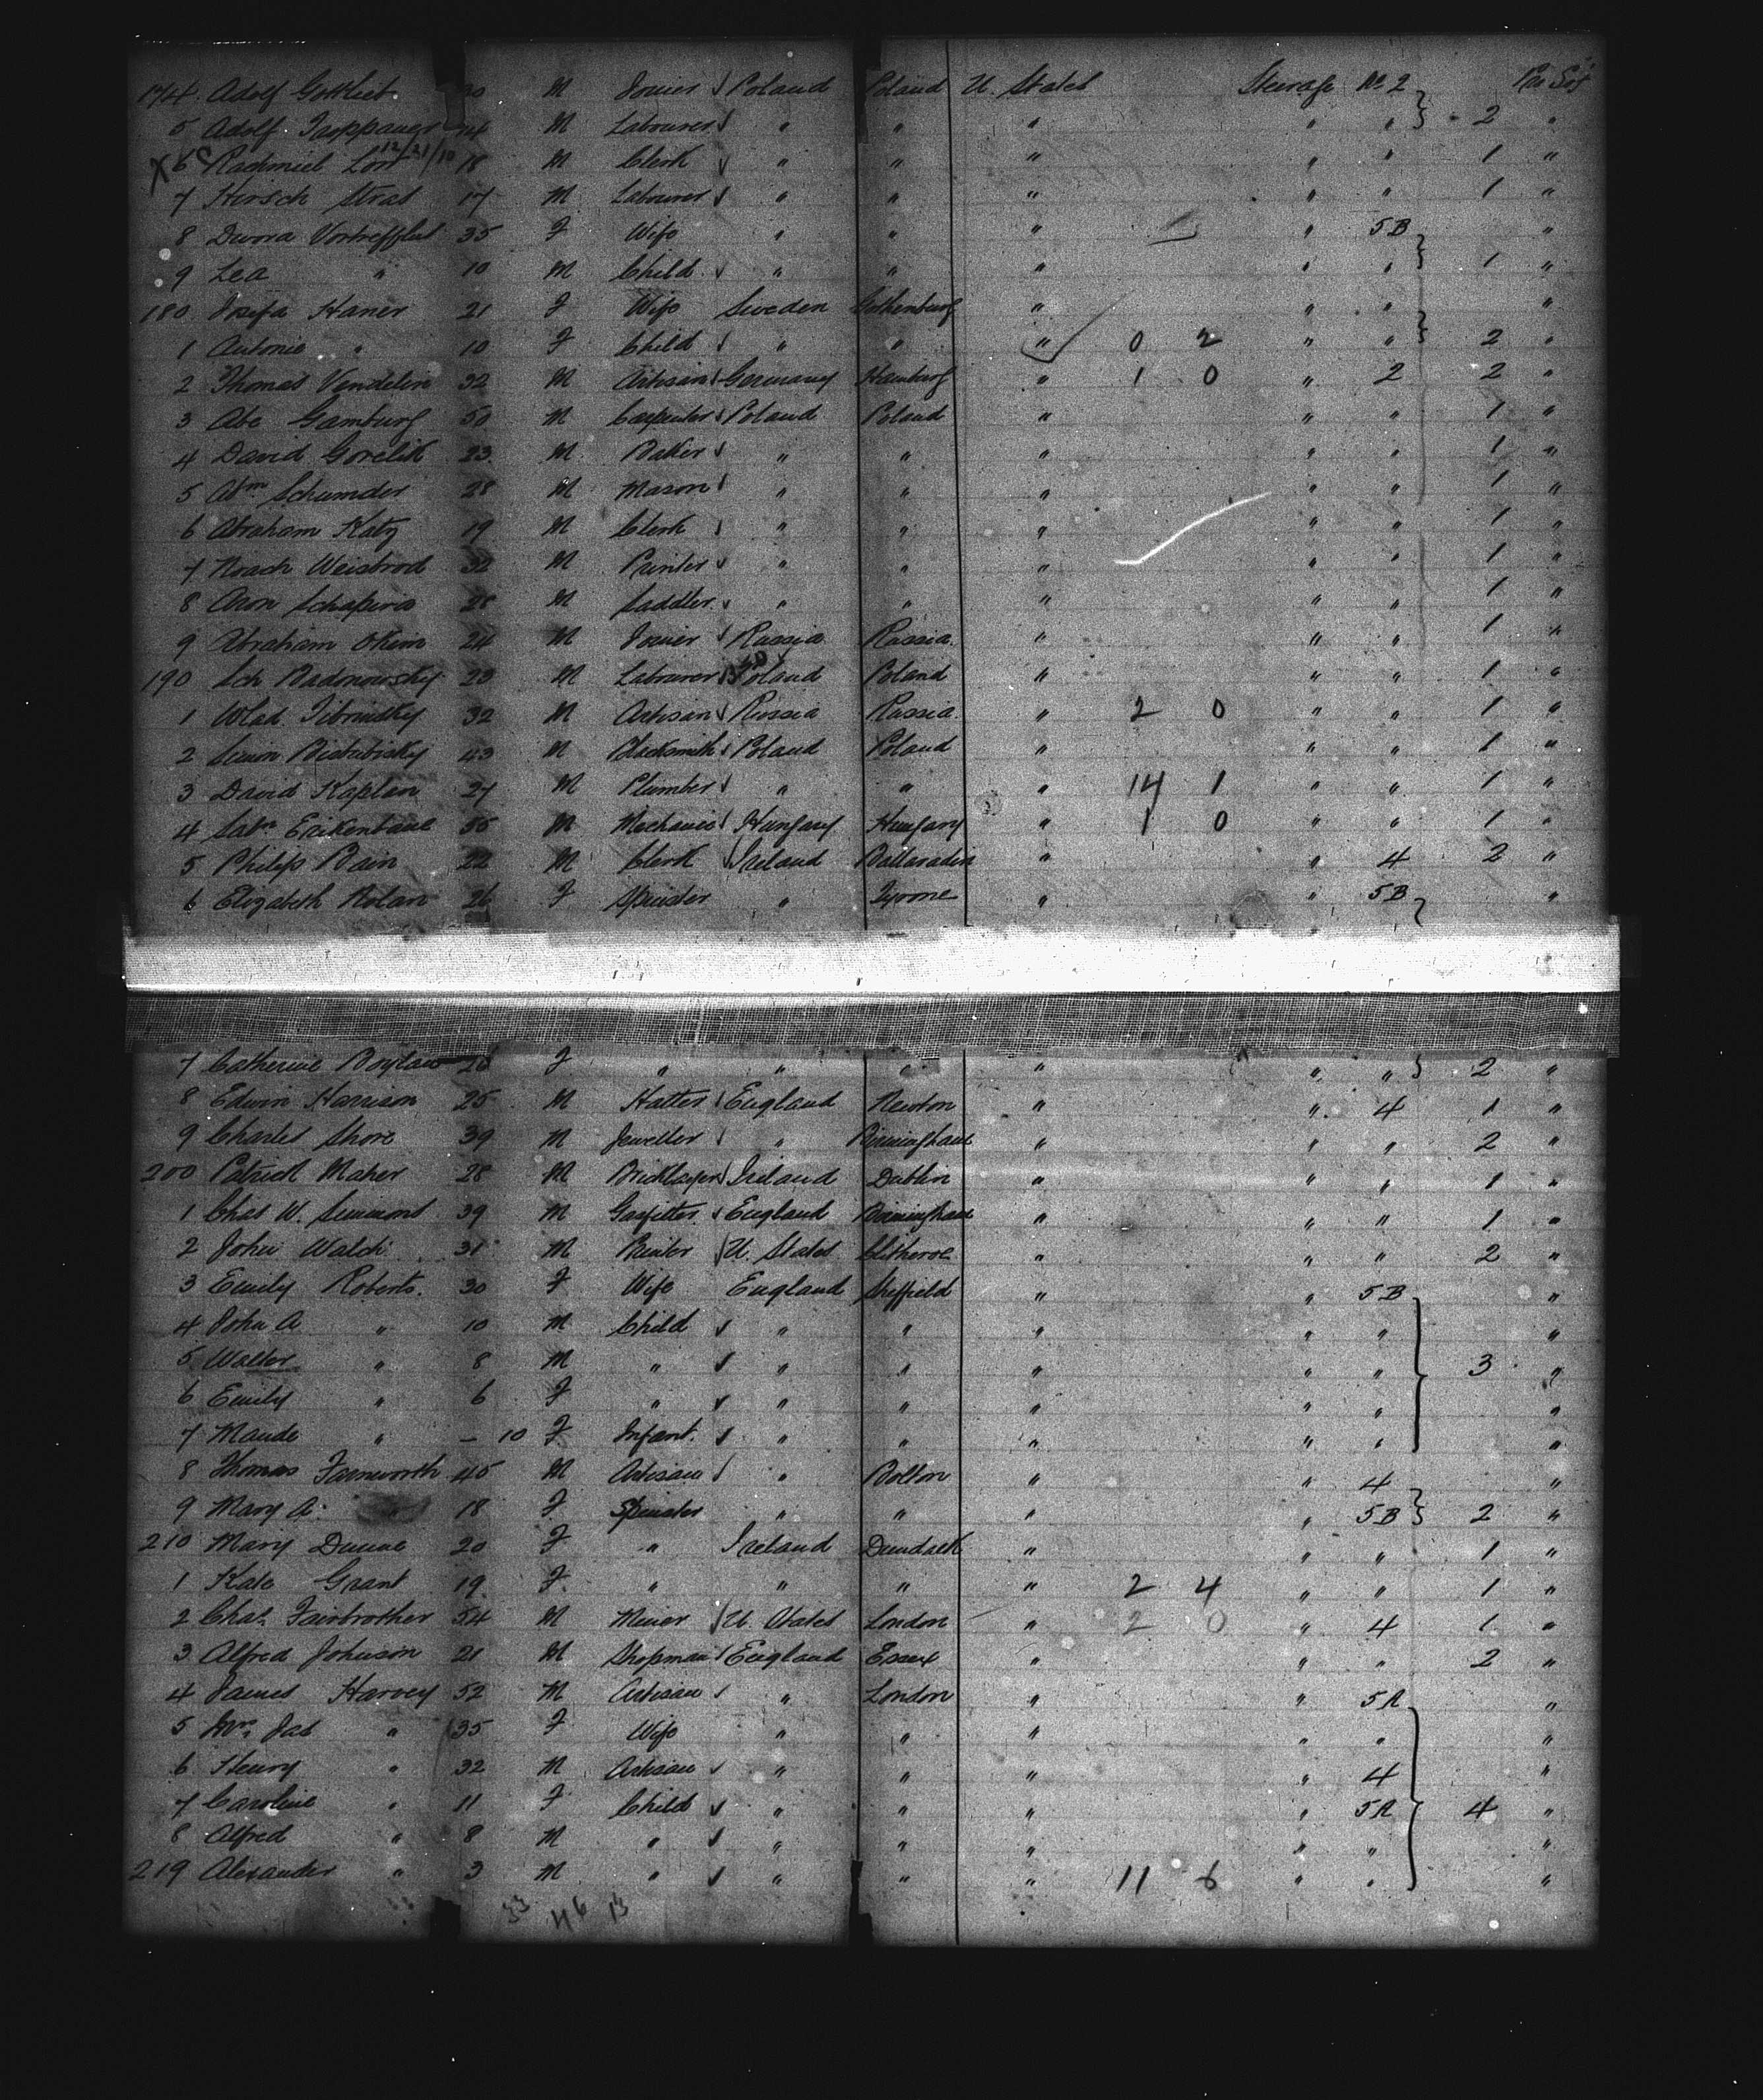 174 Adolf Gottlieb 30 M Joiner Poland Poland U. States Steerage No 2
5 Adolf Troppauer 24 M Labourer " " " " " 2 "
X 6 Rachmiel 12/21/10 18 M Clerk " " " " " 1 "
7 Hirsch Stras 17 M Labourer " " " " " 1 "
8 Dwora 35 F Wife " " " " 5B "
9 Lea " 10 M Child " " " " " 1 "
180 Josefa Haner 21 F Wife Sweden Gothenburg " " " "
1 Antonie " 10 F Child " " " 0 2 " " 2 "
2 Thomas Vendelin 32 M Artisan Germany Hamburg " 1 0 " 2 2 "
3 Abe Gamburg 50 M Carpenter Poland Poland " " " 1 "
4 David Gorelik 23 M Baker " " " " " 1 "
5 Abm Schumder 28 M Mason " " " " " 1 "
6 Abraham Katz 19 M Clerk " " " " " 1 "
7 Noach Weisbrod 32 M Printer " " " " " 1 "
8 Aron Schapiro 28 M Saddler " " " " " 1 "
9 Abraham Okun 24 M Joiner Russia Russia " " " 1 "
190 Sch Radnowsky 23 M Labourer Poland Poland " " " 1 "
1 Wlad. 32 M Artisan Russia Russia " 2 0 " " 1 "
2 43 M Blacksmith Poland Poland " " " 1 "
3 David Kaplan 27 M Plumber " " " 14 1 " " 1 "
4 55 M Mechanic Hungary Hungary " 1 0 " " 1 "
5 Philip Bain 22 M Clerk Ireland " " 4 2 "
6 Elizabeth Nolan 26 F Spinster " Tyrone " " 5B "
7 Catherine Boylan 26 F " " " " " " 2 "
8 Edwin Harrison 25 M Hatter England Newton " " 4 1 "
9 Charles Shore 39 M Jeweller " Birmingham " " " 2 "
200 Patrick Maher 28 M Bricklayer Ireland Dublin " " " 1 "
1 Chas W. Simmons 39 M Gasfitter England Birmingham " " " 1 "
2 John Walch 31 M U. States Clitheroe " " " 2 "
3 Emily Roberts 30 F Wife England Sheffield " " 5B "
4 John A " 10 M Child " " " " " "
5 Walter " 8 M " " " " " " 3 "
6 Emily " 6 F " " " " " " "
7 Maude " – 10 F Infant. " " " " " "
8 Thomas Farnworth 45 M Artisan " Bolton " " 4 "
9 Mary A. " 18 F Spinster " " " " 5B 2 "
210 Mary Dunne 20 F " Ireland Dundalk " " " 1 "
1 Kate Grant 19 F " " " " 2 4 " " 1 "
2 Chas. Fairbrother 54 M Miner U. States London " 2 0 " 4 1 "
3 Alfred Johnson 21 M Shopman England Essex " " " 2 "
4 James Harvey 52 M Artisan " London " " 5A "
5 Mrs Jas " 35 F Wife " " " " " "
6 Henry " 32 M Artisan " " " " 4 "
7 Caroline " 11 F Child " " " " 5A 4 "
8 Alfred " 8 M " " " " " " "
219 Alexander " 3 M " " " " 11 6 " " "
33 46 13